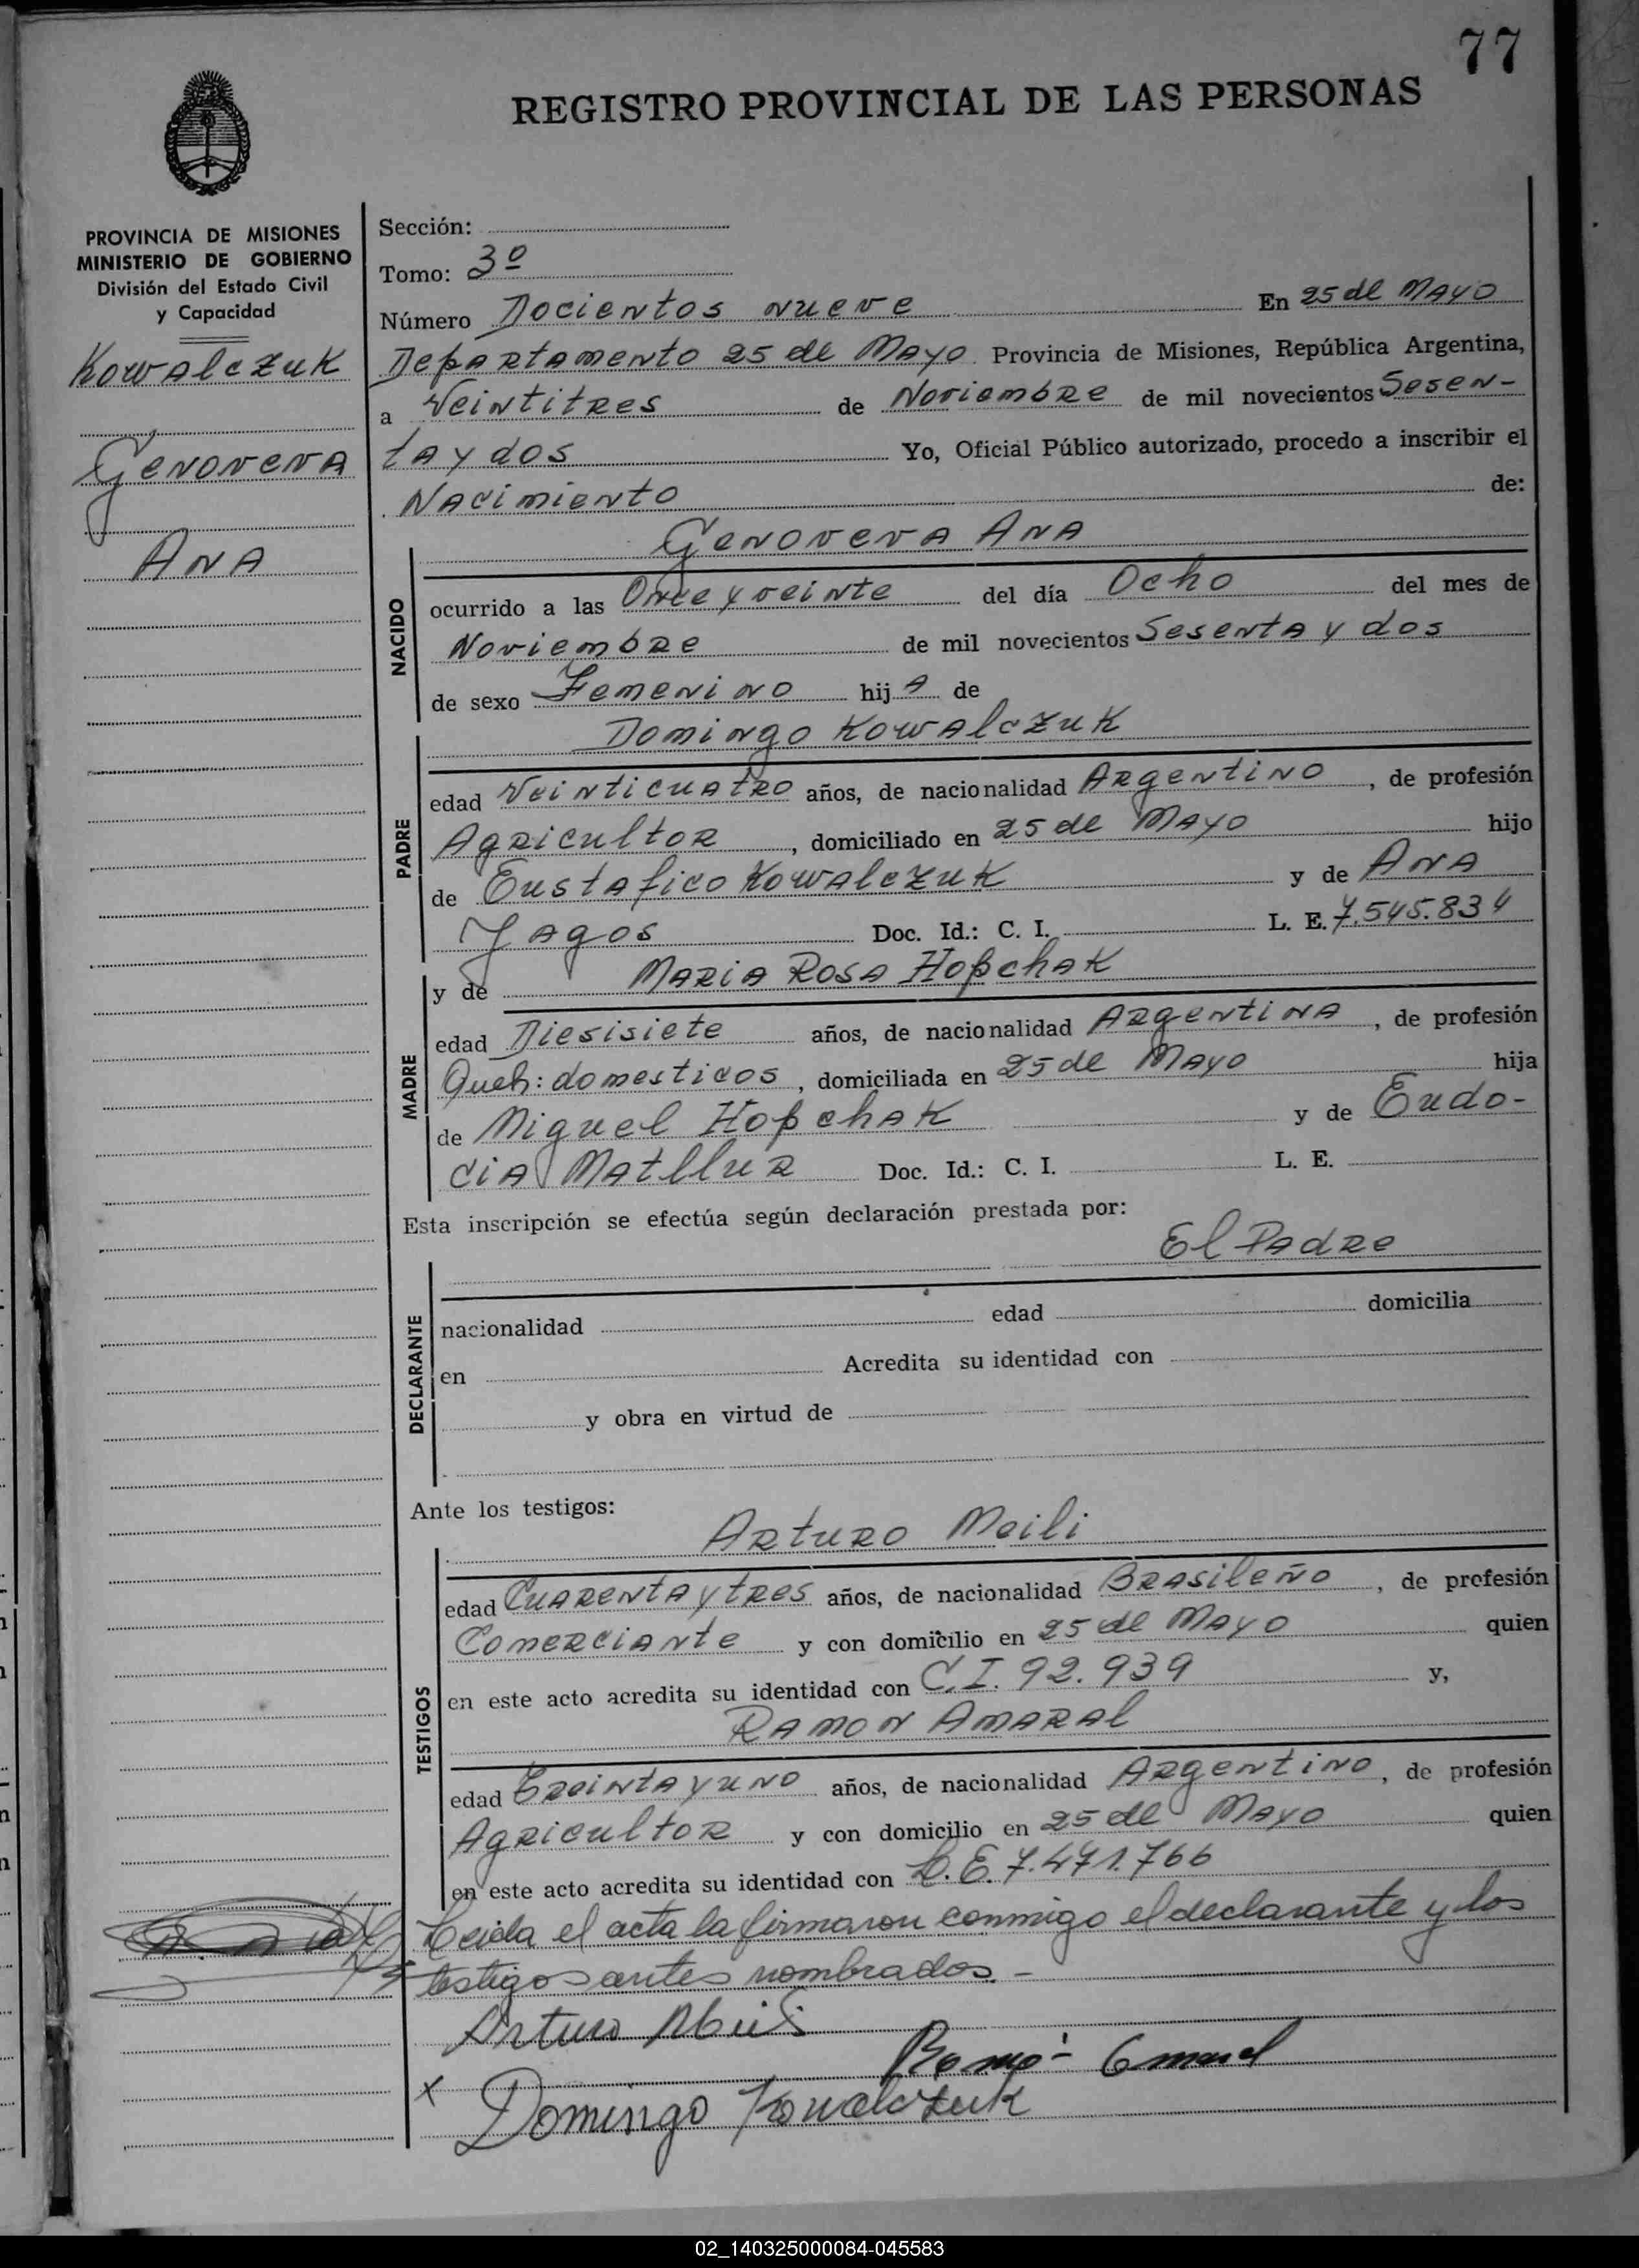 77
REGISTRO PROVINCIAL DE LAS PERSONAS
PROVINCIA DE MISIONES
MINISTERIO DE GOBIERNO
División del Estado Civil
y Capacidad
Kowalczuk
Genoveva
Ana
Sección:
Tomo: 3º
Número Docientos nueve En 25 de Mayo
Departamento 25 de Mayo Provincia de Misiones, República Argentina,
a Veintitres de Noviembre de mil novecientos Sesen-
ta y dos Yo, Oficial Público autorizado, procedo a inscribir el
Nacimiento de:
Genoveva Ana
NACIDO
ocurrido a las Once y veinte del día Ocho del mes de
Noviembre de mil novecientos Sesenta y dos
de sexo Femenino hija de
Domingo Kowalczuk
PADRE
edad Veinticuatro años, de nacionalidad Argentino, de profesión
Agricultor, domiciliado en 25 de Mayo hijo
de Eustafico Kowalczuk y de Ana
Jagos Doc. Id.: C. I. L. E. 7.545.834
y de Maria Rosa Hopchak
MADRE
edad Diesisiete años, de nacionalidad Argentina, de profesión
Queh: domesticos, domiciliada en 25 de Mayo hija
de Miguel Hopchak y de Eudo-
cia Matlluz Doc. Id.: C. I. L. E.
Esta inscripción se efectúa según declaración prestada por:
El Padre
DECLARANTE
nacionalidad edad domicilia
en Acredita su identidad con
y obra en virtud de
Ante los testigos:
Arturo Meili
TESTIGOS
edad Cuarenta y tres años, de nacionalidad Brasileño, de profesión
Comerciante y con domicilio en 25 de Mayo quien
en este acto acredita su identidad con C.I. 92.939 y,
Ramon Amaral
edad Treinta y uno años, de nacionalidad Argentino, de profesión
Agricultor y con domicilio en 25 de Mayo quien
en este acto acredita su identidad con L.E. 7.471.766
Leida el acta la firmaron conmigo el declarante y los
testigos antes nombrados.-
Arturo Meili
Ramó- Amaral
x Domingo Kowalczuk
02_140325000084-045583